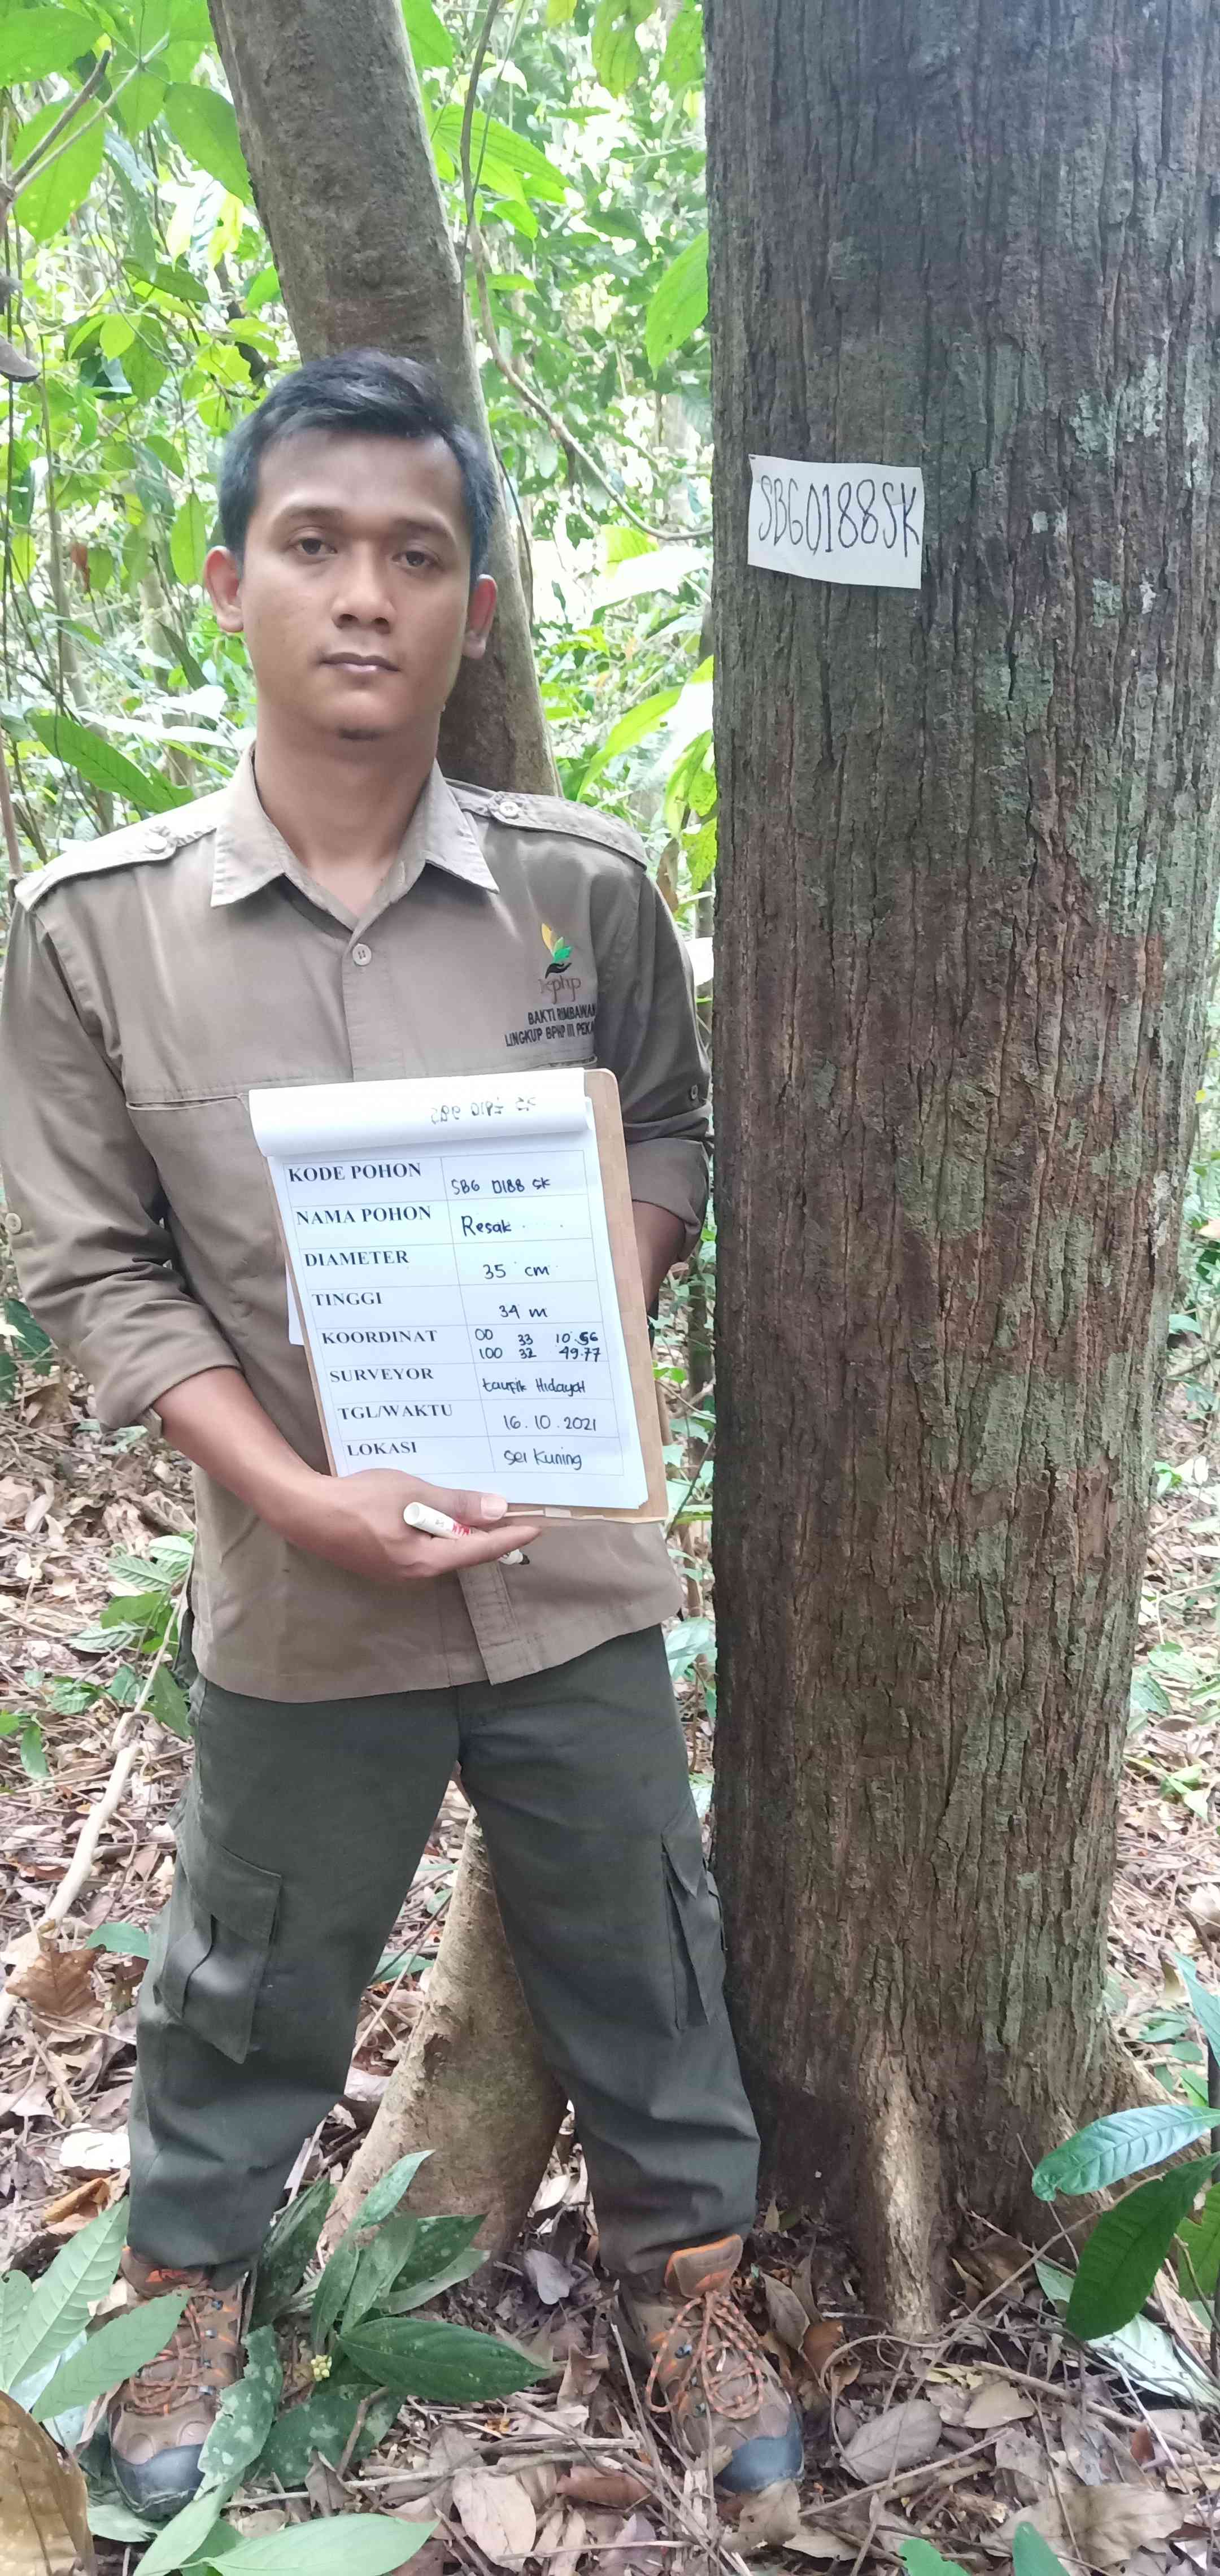 SBG0188SK
kphp
BAKTI RIMBAWAN
LINGKUP BPHP III PEKA
KODE POHON SBG 0188 SK
NAMA POHON Resak
DIAMETER 35 cm
TINGGI 34 m
KOORDINAT 00 33 10.56
100 32 49.77
SURVEYOR taufik Hidayat
TGL/WAKTU 16.10.2021
LOKASI Sei Kuning